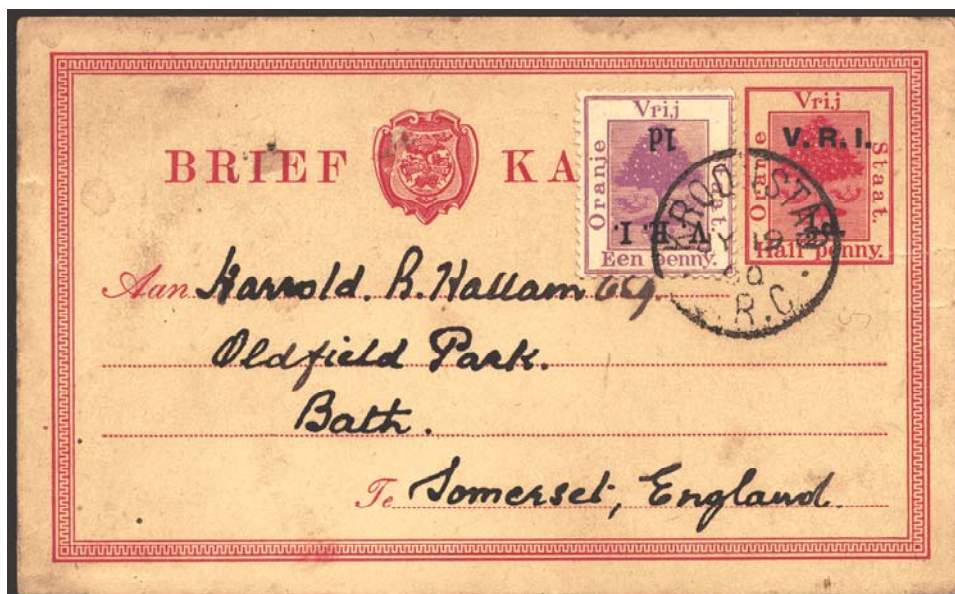 BRIEF KA
Vrij
Oranje
Staat.
1d
V. R. I.
Een penny.
Vrij
Oranje
Staat.
V. R. I.
½d.
Half penny.
KROONSTAD
19
R.C.
Aan Harrold. R. Hallam
Oldfield Park.
Bath.
Te Somerset, England.